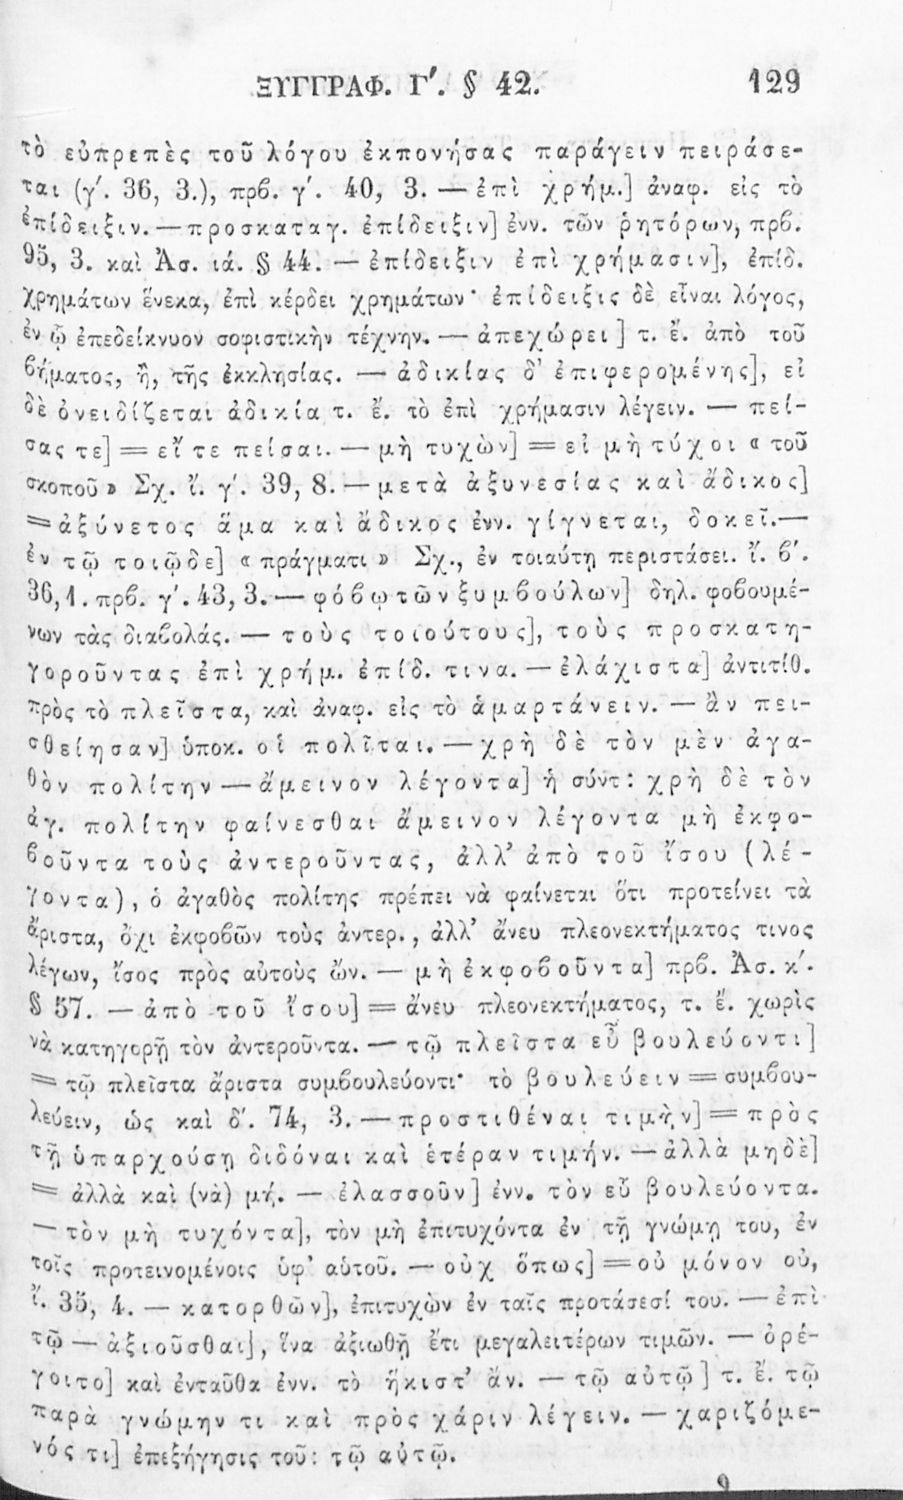 ΞΥΓΓΡΑΦ. Γʹ. § 42. 129
τὸ εὐπρεπὲς τοῦ λόγου ἐκπονήσας παράγειν πειράσε-
ται (γʹ. 36, 3.), πρβ. γʹ. 40, 3. — ἐπὶ χρήμ.] ἀναφ. εἰς τὸ
ἐπίδειξιν. — προσκαταγ. ἐπίδειξιν] ἐνν. τῶν ῥητόρων, πρβ.
95, 3. καὶ Ἀσ. ιά. § 44. — ἐπίδειξιν ἐπὶ χρήμασιν], ἐπίδ.
χρημάτων ἕνεκα, ἐπὶ κέρδει χρημάτων· ἐπίδειξις δὲ εἶναι λόγος,
ἐν ᾧ ἐπεδείκνυον σοφιστικὴν τέχνην. — ἀπεχώρει] τ. ἔ. ἀπὸ τοῦ
βήματος, ἢ, τῆς ἐκκλησίας. — ἀδικίας δ' ἐπιφερομένης], εἰ
δὲ ὀνειδίζεται ἀδικία τ. ἔ. τὸ ἐπὶ χρήμασιν λέγειν. — πεί-
σας τε] = εἴ τε πείσαι. — μὴ τυχὼν] = εἰ μὴ τύχοι « τοῦ
σκοποῦ » Σχ. ἴ. γʹ. 39, 8. — μετὰ ἀξυνεσίας καὶ ἄδικος]
= ἀξύνετος ἅμα καὶ ἄδικος ἐνν. γίγνεται, δοκεῖ. —
ἐν τῷ τοιῷδε] « πράγματι » Σχ., ἐν τοιαύτῃ περιστάσει. ἴ. βʹ.
36,1. πρβ. γʹ. 43, 3. — φόβῳ τῶν ξυμβούλων] δηλ. φοβουμέ-
νων τὰς διαβολάς. — τοὺς τοιούτους], τοὺς προσκατη-
γοροῦντας ἐπὶ χρήμ. ἐπίδ. τινα. — ἐλάχιστα] ἀντιτίθ.
πρὸς τὸ πλεῖστα, καὶ ἀναφ. εἰς τὸ ἁμαρτάνειν. — ἂν πει-
σθείησαν] ὑποκ. οἱ πολῖται. — χρὴ δὲ τὸν μὲν ἀγα-
θὸν πολίτην — ἄμεινον λέγοντα] ἡ σύντ: χρὴ δὲ τὸν
ἀγ. πολίτην φαίνεσθαι ἄμεινον λέγοντα μὴ ἐκφο-
βοῦντα τοὺς ἀντεροῦντας, ἀλλ' ἀπὸ τοῦ ἴσου (λέ-
γοντα), ὁ ἀγαθὸς πολίτης πρέπει νὰ φαίνεται ὅτι προτείνει τὰ
ἄριστα, ὄχι ἐκφοβῶν τοὺς ἀντερ., ἀλλ' ἄνευ πλεονεκτήματος τινος
λέγων, ἴσος πρὸς αὐτοὺς ὤν. — μὴ ἐκφοβοῦντα] πρβ. Ἀσ. κʹ.
§ 57. — ἀπὸ τοῦ ἴσου] = ἄνευ πλεονεκτήματος, τ. ἔ. χωρὶς
νὰ κατηγορῇ τὸν ἀντεροῦντα. — τῷ πλεῖστα εὖ βουλεύοντι]
= τῷ πλεῖστα ἄριστα συμβουλεύοντι· τὸ βουλεύειν = συμβου-
λεύειν, ὡς καὶ δʹ. 74, 3. — προστιθέναι τιμὴν] = πρὸς
τῇ ὑπαρχούσῃ διδόναι καὶ ἑτέραν τιμήν. — ἀλλὰ μηδὲ]
= ἀλλὰ καὶ (νὰ) μή. — ἐλασσοῦν] ἐνν. τὸν εὖ βουλεύοντα.
— τὸν μὴ τυχόντα], τὸν μὴ ἐπιτυχόντα ἐν τῇ γνώμῃ του, ἐν
τοῖς προτεινομένοις ὑφ' αὑτοῦ. — οὐχ ὅπως] = οὐ μόνον οὐ,
ἴ. 35, 4. — κατορθῶν], ἐπιτυχὼν ἐν ταῖς προτάσεσί του. — ἐπὶ
τῷ — ἀξιοῦσθαι], ἵνα ἀξιωθῇ ἔτι μεγαλειτέρων τιμῶν. — ὀρέ-
γοιτο] καὶ ἐνταῦθα ἐνν. τὸ ἥκιστ' ἄν. — τῷ αὐτῷ] τ. ἔ. τῷ
παρὰ γνώμην τι καὶ πρὸς χάριν λέγειν. — χαριζόμε-
νός τι] ἐπεξήγησις τοῦ: τῷ αὐτῷ.
9